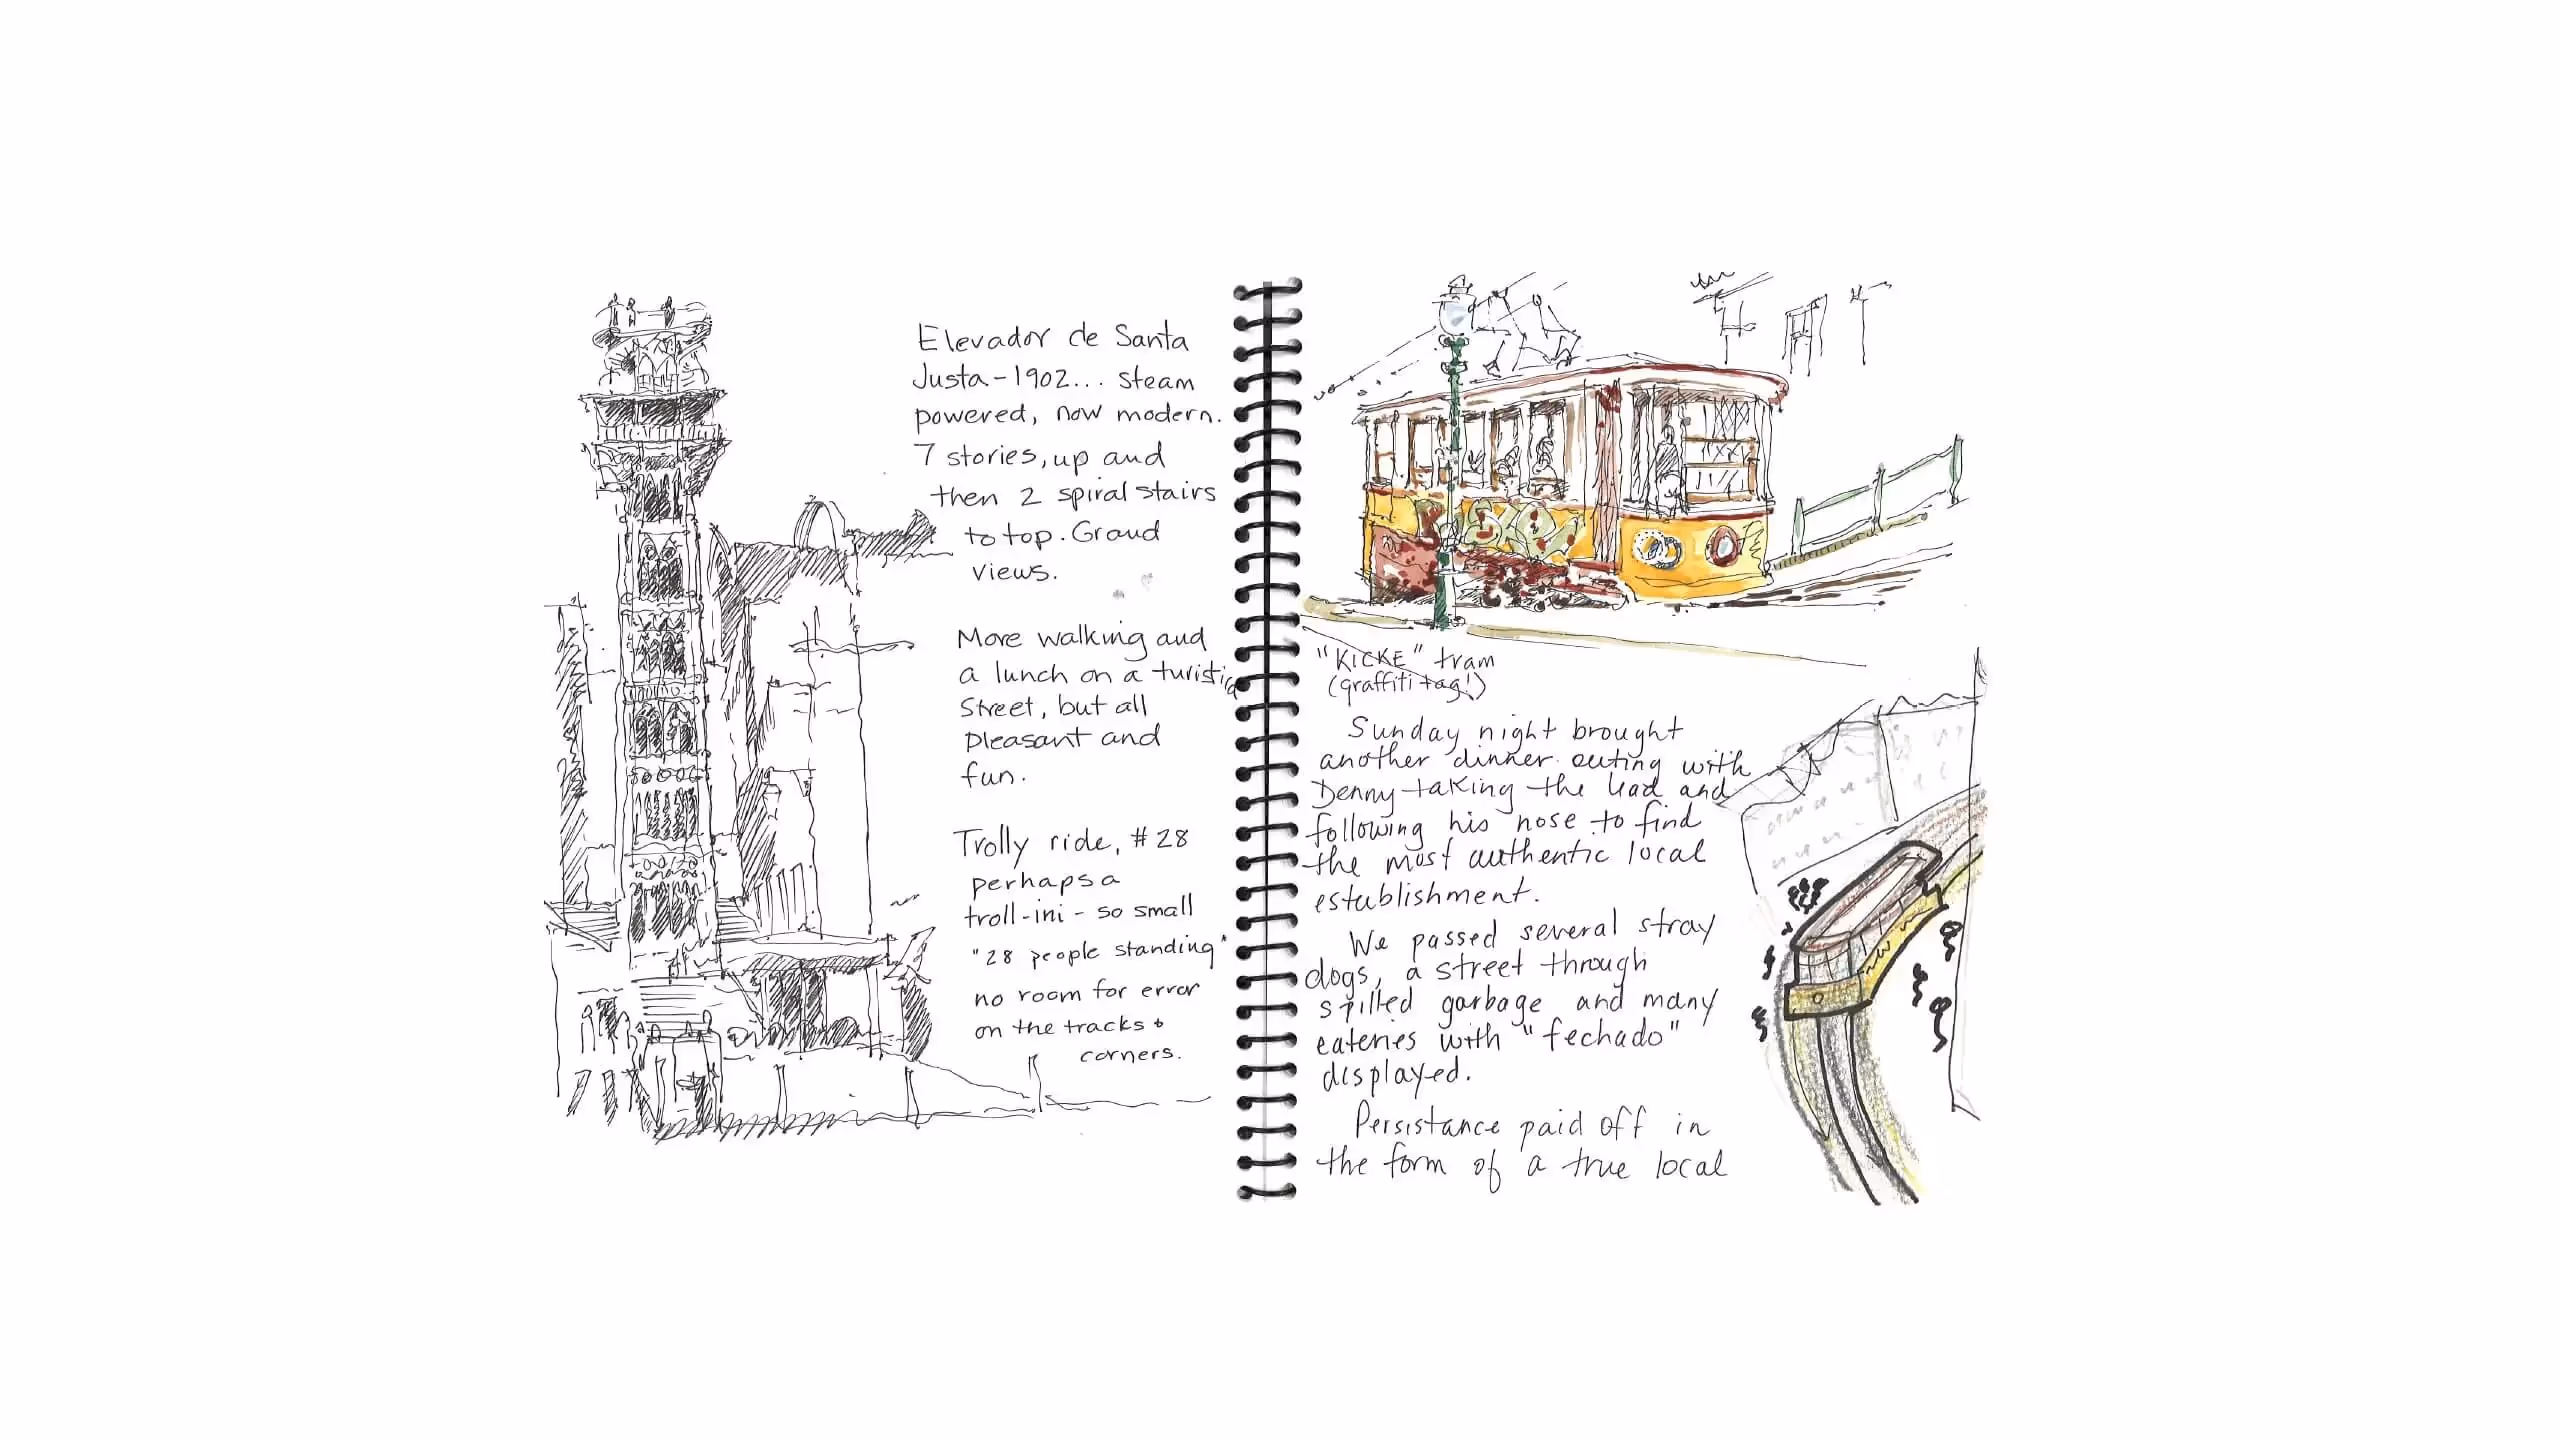 Elevador de Santa
Justa-1902... steam
powered, now modern.
7 stories, up and
then 2 spiral stairs
to top. Grand
views.
More walking and
a lunch on a turistic
street, but all
pleasant and
fun.
Trolly ride, #28
perhaps a
troll-ini - so small
"28 people standing"
no room for error
on the tracks &
corners.
"KICKE" tram
(graffiti tag!)
Sunday night brought
another dinner outing with
Denny taking the lead and
following his nose to find
the most authentic local
establishment.
We passed several stray
dogs, a street through
spilled garbage and many
eateries with "fechado"
displayed.
Persistance paid off in
the form of a true local